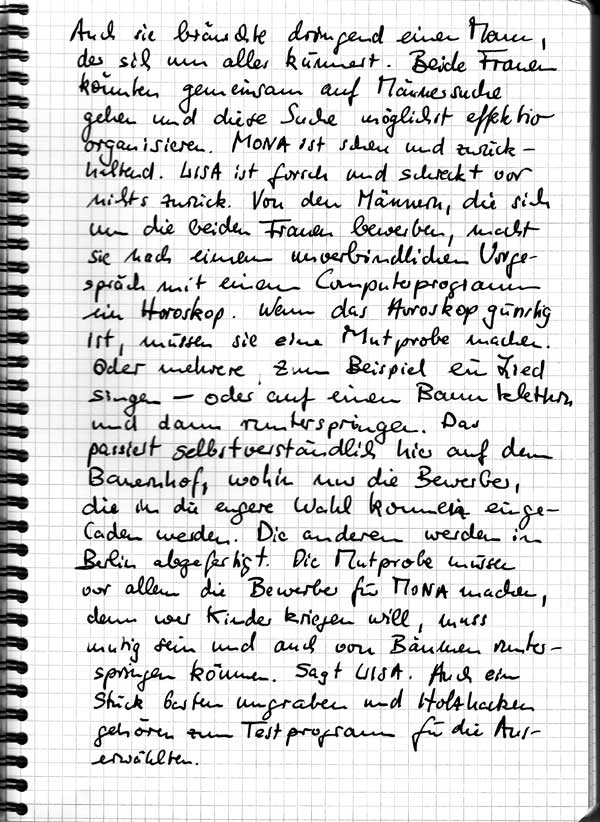 Auch sie bräuchte dringend einen Mann,
der sich um alles kümmert. Beide Frauen
könnten gemeinsam auf Männersuche
gehen und diese Suche möglichst effektiv
organisieren. MONA ist scheu und zurück-
haltend. LISA ist forsch und schreckt vor
nichts zurück. Von den Männern, die sich
um die beiden Frauen bewerben, macht
sie nach einem unverbindlichen Vorge-
spräch mit einem Computerprogramm
ein Horoskop. Wenn das Horoskop günstig
ist, müssen sie eine Mutprobe machen.
Oder mehrere. Zum Beispiel ein Lied
singen – oder auf einen Baum klettern
und dann runterspringen. Das
passiert selbstverständlich hier auf dem
Bauernhof, wohin nur die Bewerber,
die in die engere Wahl kommen einge-
laden werden. Die anderen werden in
Berlin abgefertigt. Die Mutprobe müssen
vor allem die Bewerber für MONA machen,
denn wer Kinder kriegen will, muss
mutig sein und auch von Bäumen runter-
springen können. Sagt LISA. Auch ein
Stück Garten umgraben und Holzhacken
gehören zum Testprogramm für die Aus-
erwählten.